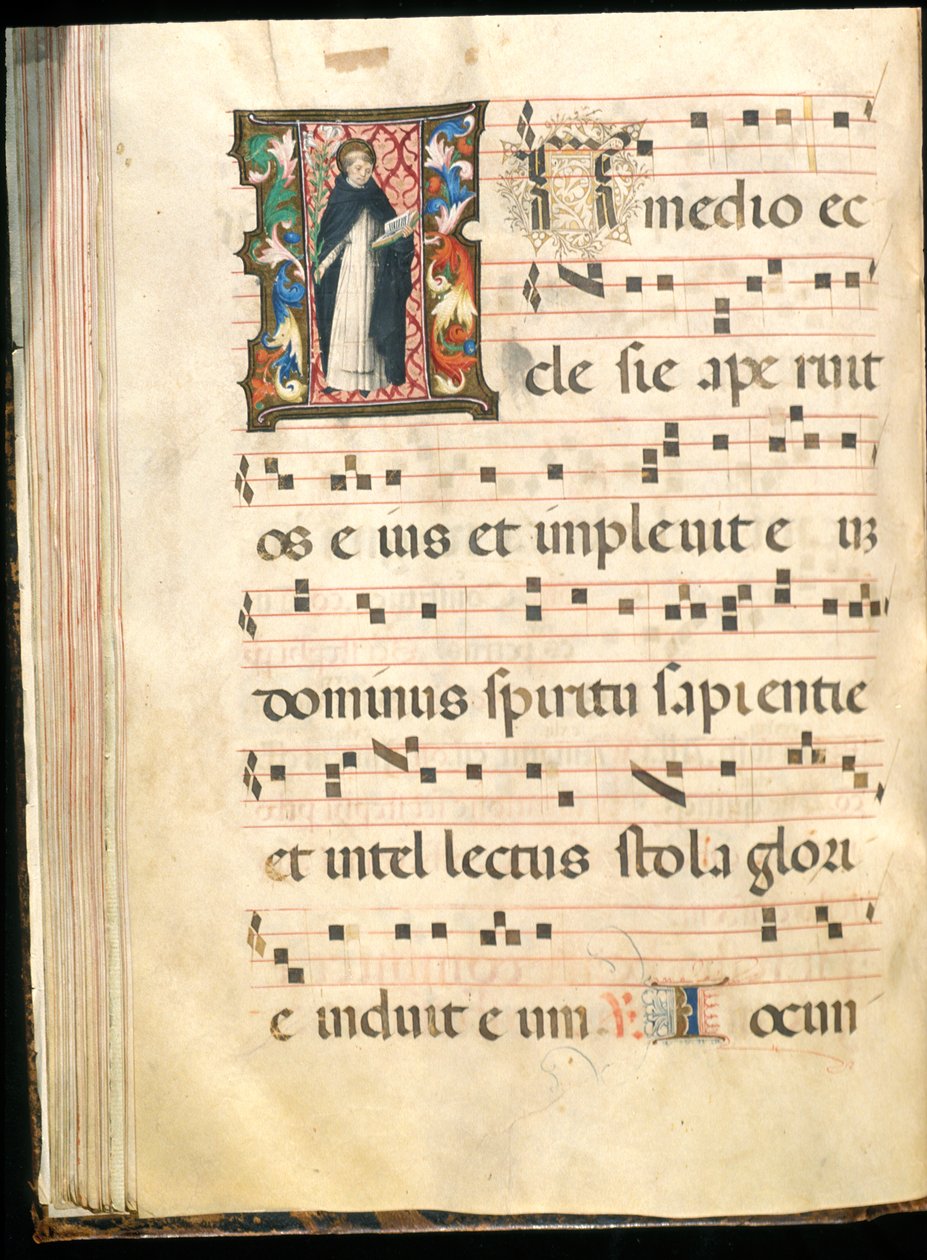 IN medio ec
cle sie ape ruit
os e ius et implevit e uz
dominus spiritu sapientie
et intel lectus stola glori
e induit e um V. Iocun